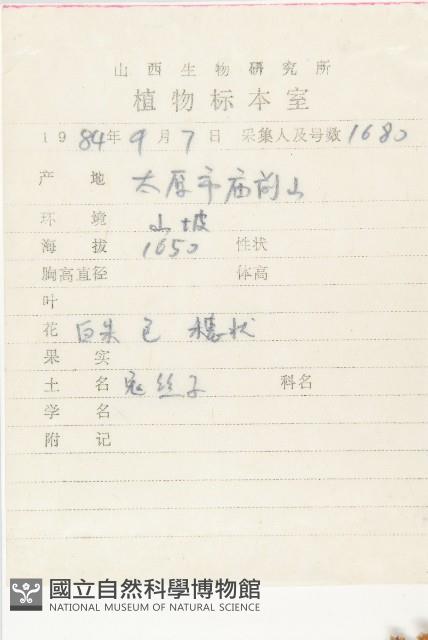 山西生物研究所
植物标本室
1984年9月7日 采集人及号数1680
产 地 太原市庙前山
环 境 山坡
海 拔 1650 性状
胸高直径 体高
叶
花 白朱 已 穗状
果 实
土 名 兔丝子 科名
学 名
附 记
國立自然科學博物館
NATIONAL MUSEUM OF NATURAL SCIENCE